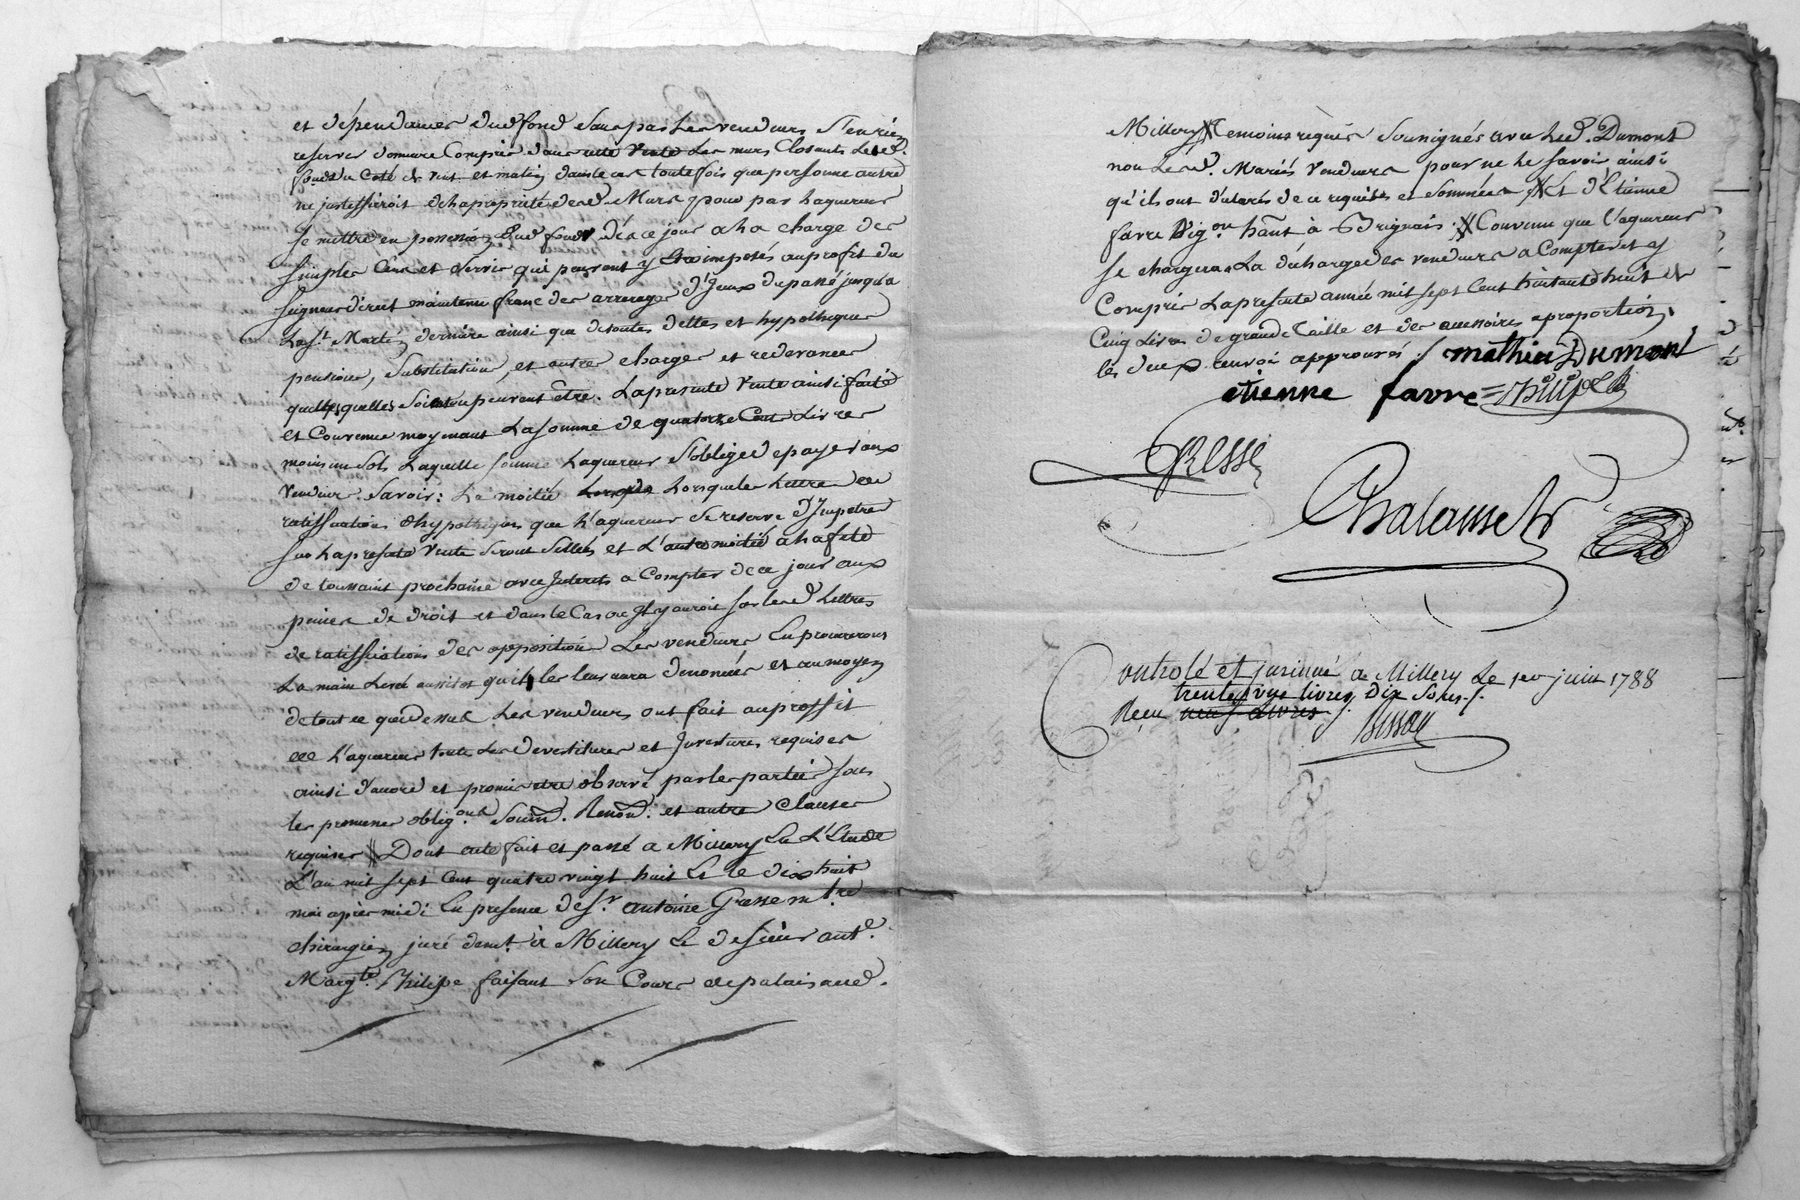 et dépendances dud fond sans par les vendeurs s'en rien
reserver domaine Compris dans cette vente les murs Closants led.
fond du Coté de vent et matin dans le cas toutefois que personne autre
ne justiffieroit de la propriété desd. Murs pour par laquereur
se mettre en possession dud fond dès ce jour a la charge des
simples Cens et servis qui peuvent y etre imposés au profit du
seigneur direct maintenu franc des arrerages d'Iceux du passé jusqu'a
la St. Martin derniere ainsi que de toutes dettes et hypotheques
pensions, substitution, et autres charges et redevances
quelles quelles soient ou peuvent être. La presente vente ainsi faite
et Convenue moymant la somme de quatorze Cent Livres
moins un sols laquelle somme laquereur s'oblige de payer aux
vendeurs Savoir: La moitié lorsque les Lettres de
ratiffications d'hypotheques que l'aquereur se reserve d'Impetrer
sur la presente vente seront sellés et L'autre moitié a la fete
de toussaint prochaine avec Interets a Compter de ce jour aux
peines de droit et dans le Cas ou Il y auroit sur lesd Lettres
de ratiffications des opposition Les vendeurs En procureront
La main Levé aussitot qu'ils les leurs aura denoncés et au moyen
de tout ce que dessus Les vendeurs ont fait au proffit
de L'aquereur toute Les devestitures et Investures requises
ainsi d'accord et promis etre observé par les parties sous
les promeses oblig.ons Soum. Renon. et autre clauses
requises # Dont acte fait et passé a Millery En L'Etude
L'an mil sept Cent quatre vingt huit Et le dix huit
mai après midi En presence de Sr. antoine Gresse mtre
chirurgien juré demt. à Millery Et de sieur ant.
Marg.te Philipe faisant son Cours de palais aud.
Millery # temoins requis Soussignés avec led. Dumont
non Lesd. Mariés vendeurs pour ne le savoir ainsi
qu'ils ont déclarés de ce requis et sommés # Et d'Etienne
favre Vig.on habt à Brignais. # Convenu que l'aquereur
se chargera a La décharge des vendeurs a Compter et y
Compris la presente année mil sept Cent huitante huit de
Cinq Livres de grande Taille et des accessoires a proportion,
les deux renvoi approuvés ./. mathieu Dumont
etienne favre = Philipe
GRESSE
Chalausset
Controlé et insinué a Millery Le 1er juin 1788
trente une livres dix sols ./.
Reçu neuf livres
Bissay